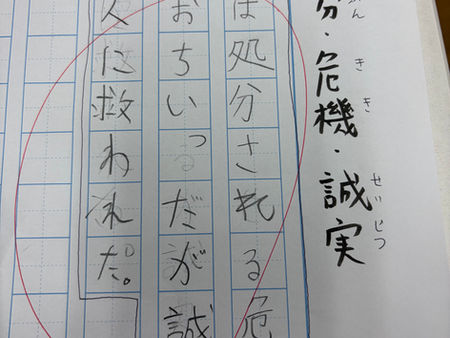 分・危機・誠実
ん きき せいじつ
は処分される危
おちいっだが誠
人に救われだ。